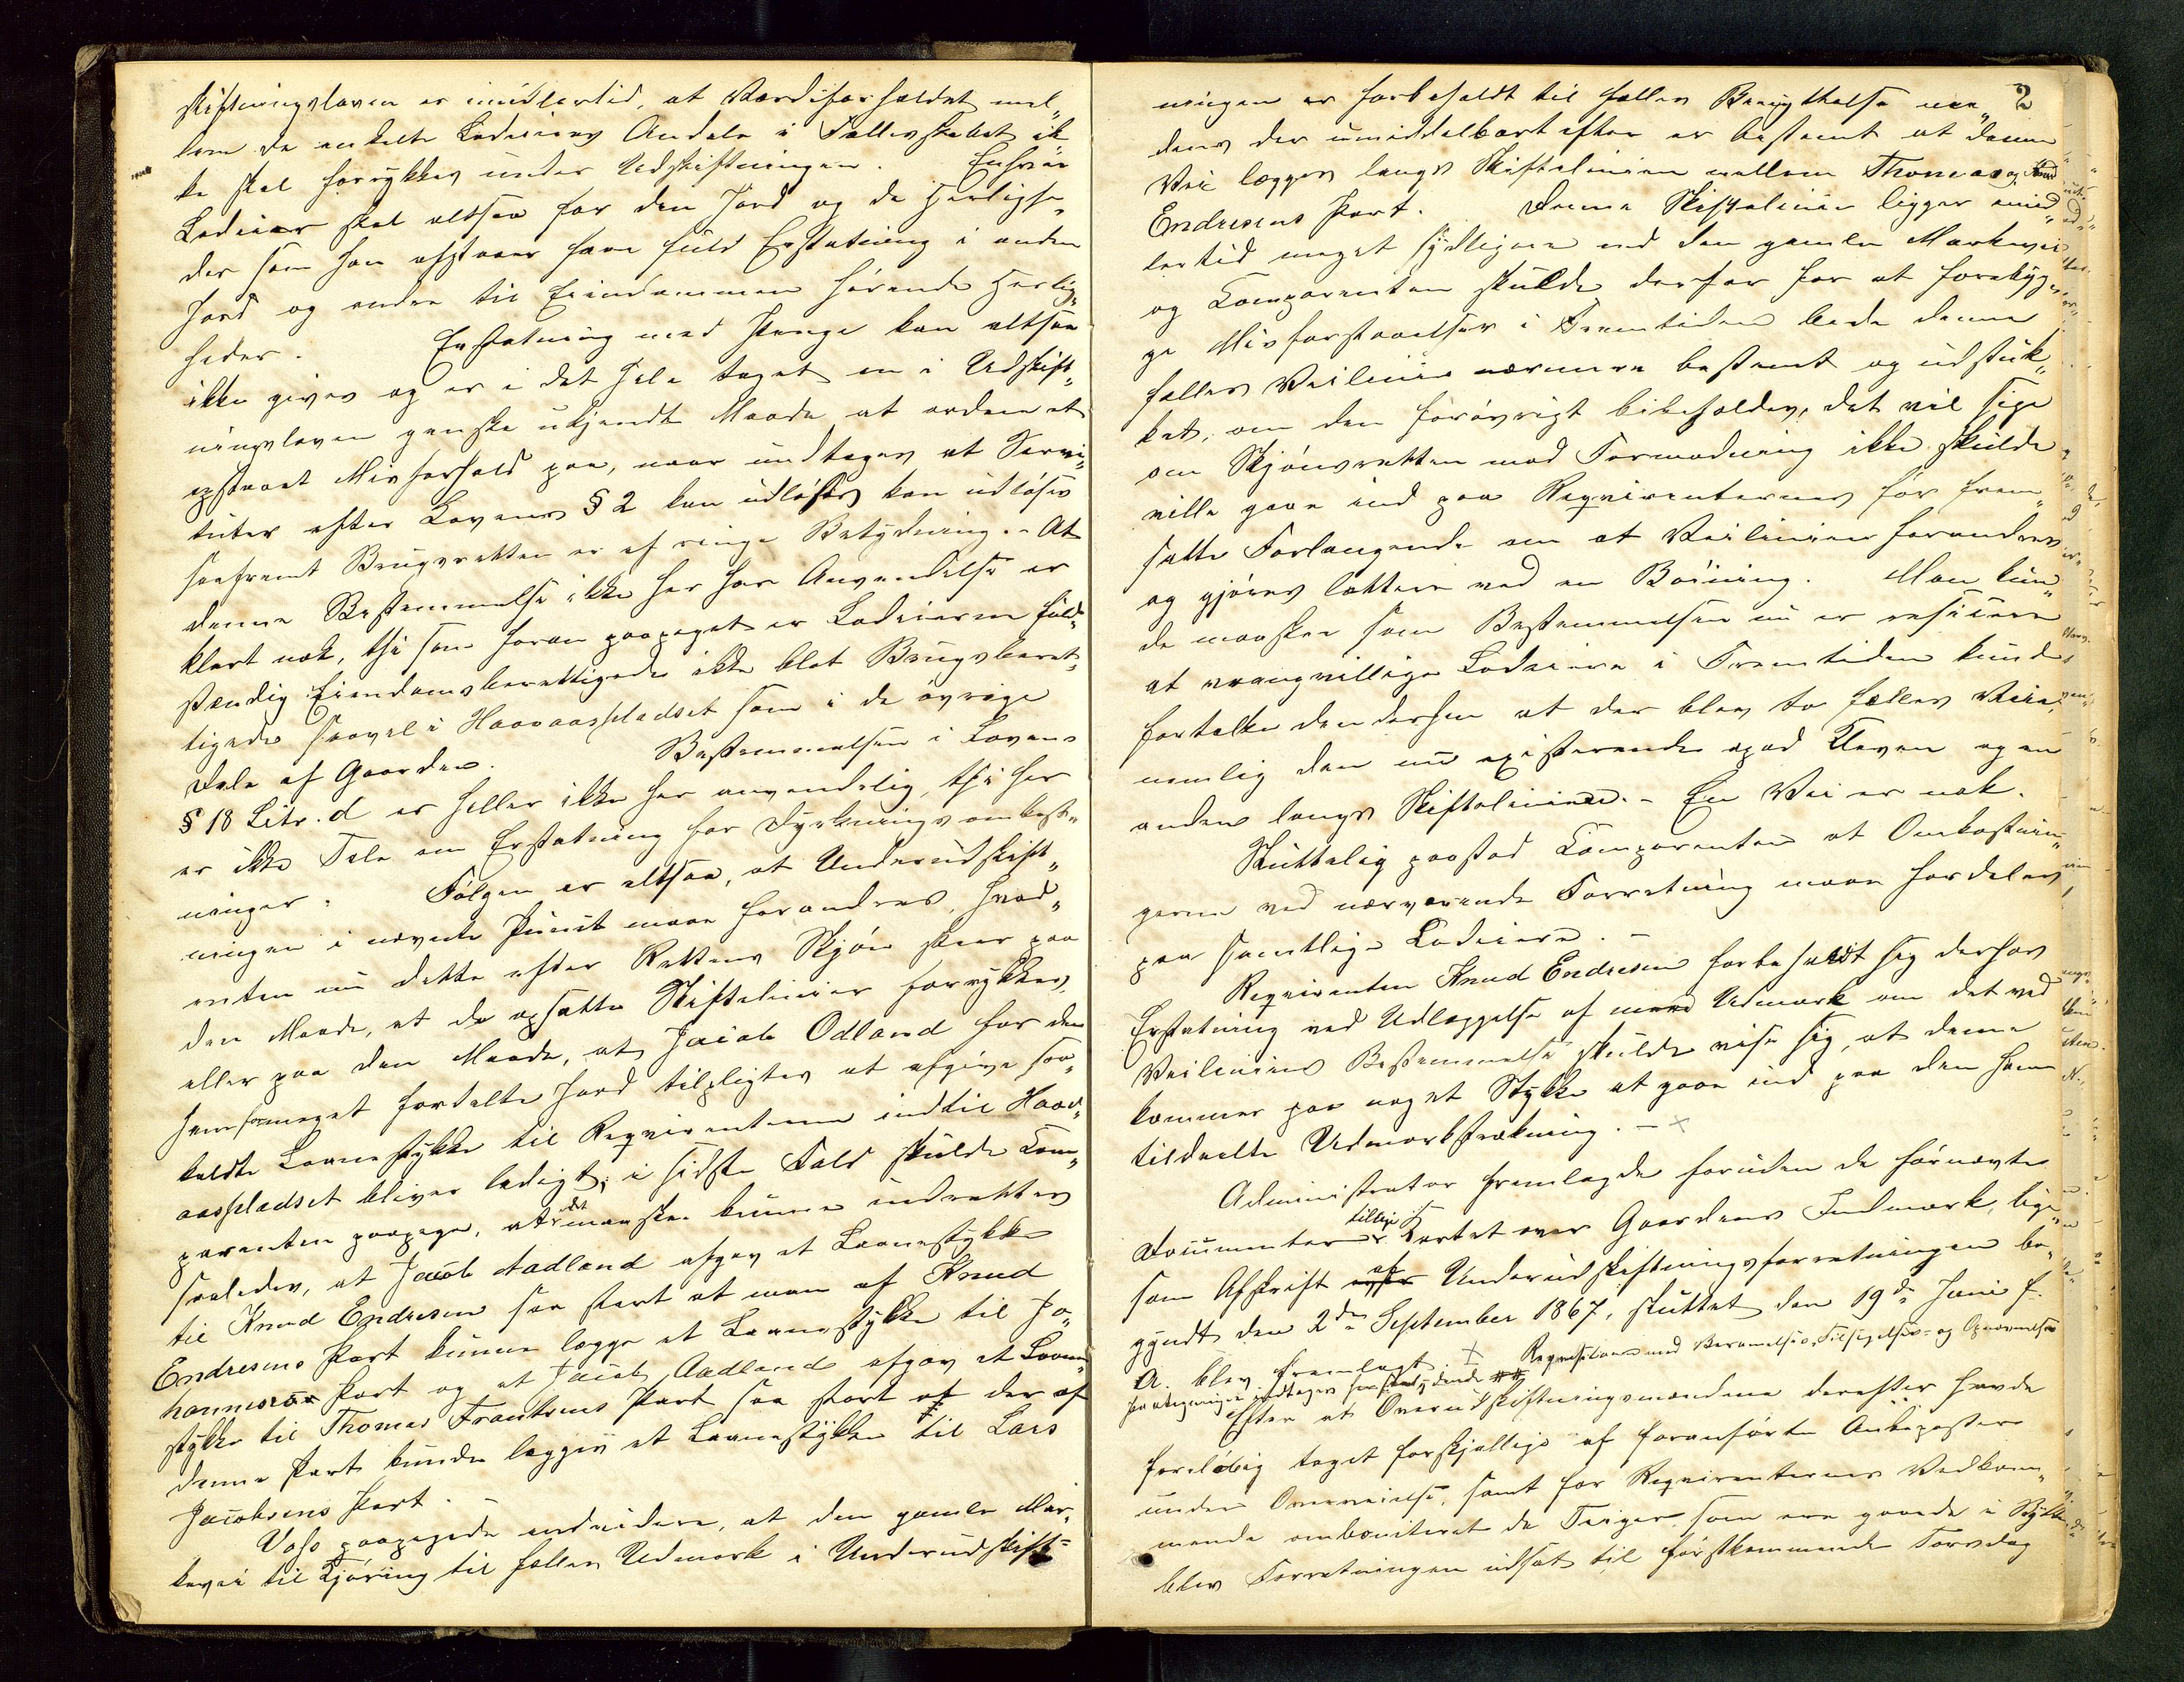 skiftningsloven er imidlertid, at Værdiforholdet mel„
lem de enkelte Lodeieres Andele i Fællesskabet ik„
ke skal forrykkes under Udskiftningen. Enhver
Lodeier skal altsaa for den Jord og de Herlighe„
der som han afstaaer have fuld Erstatning i anden
Jord og andre til Eiendommen hørende Herlig„
heder. Erstatning med Penge kan altsaa
ikke gives og er i det hele taget en i Udskift„
ningsloven ganske ukjendt Maade at ordne et
opstaaet Misforhold paa, naar undtages at Servi„
tuter efter Lovens § 2 kan udløses kan udløses
saafremt Brugsretten er af ringe Betydning. - At
denne Bestemmelse ikke her har Anvendelse er
klart nok, thi som foran paapeget er Lodeierne fuld„
stændig Eiendomsberettigede ikke blot Brugsberet„
tigede saavel i Haavaaspladset som i de øvrige
Dele af Gaarden. Bestemmelsen i Lovens
§ 18 Litr. d er heller ikke her anvendelig, thi her
er ikke Tale om Erstatning for Dyrkningsomkost„
ninger. Følgen er altsaa, at Underudskift„
ningen i nævnte Punkt maa forandres, hvad„
enten nu dette efter Rettens Skjøn skeer paa
den Maade, at de opsatte Skiftelinier forrykkes,
eller paa den Maade, at Jacob Odland for den
ham formeget fordelte Jord tilpligtes at afgive saa„
kaldte Laanestykke til Reqvirenterne indtil Haav„
aaspladset bliver ledigt; i sidste Fald skulde Com„
parenten paapege, at det maaske kunne indrettes
saaledes, at Jacob Aadland afgav et Laanestykke
til Knud Endresen saa stort at man af Knud
Endresens Part kunne lægge et Laanestykke til Jo„
hannesens Part og at Jacob Aadland afgav et Laane„
stykke til Thomas Frantsens Part saa stort at der af
denne Part kunde lægges et Laanestykke til Lars
Jacobsens Part.
Vaso paapegede endvidere, at den gamle Mar„
kevei til Kjøring til fælles Udmark i Underudskift„
2
ningen er forbeholdt til fælles Benyttelse me„
dens der umiddelbart efter er bestemt at denne
Vei lægges langs Skiftelinien mellem Thomas og Knud
Endresens Part. Denne Skiftelinie ligger imid„
lertid meget sydligere end den gamle Markevei
og Comparenten skulde derfor for at forebyg„
ge Misforstaaelser i Fremtiden bede denne
fælles Veilinie nærmere bestemt og udstuk„
ket, om den forøvrigt bibeholdes, det vil sige
om Skjønsretten mod Formodning ikke skulde
ville gaa ind paa Reqvirenternes før frem„
satte Forlangende om at Veilinien forandres
og gjøres lettere ved en Bøining. Man kun„
de maaske som Bestemmelsen nu er
at vrangvillige Lodeiere i Fremtiden kunde
fortolke den derhen at der blev to fælles Veie,
nemlig den nu existerende opad Kleven og en
anden langs Skiftelinien. - En Vei er nok.
Sluttelig paastod Comparenten at Omkostnin„
gerne ved nærværende Forretning maa fordeles
paa samtlige Lodeiere. -
Reqvirenten Knud Endresen forbeholdt sig derhos
Erstatning ved Udlæggelse af mere Udmark om det ved
Veiliniens Bestemmelse skulde vise sig, at denne
kommer paa noget Stykke at gaa ind paa den ham
tildeelte Udmarkstrækning. - ×
Administrator fremlagde foruden de førnævnte
Documenter tillige Kartet over Gaardens Indmark, lige„
som Afskrift af Underudskiftningsforretningen be„
gyndt den 2den September 1867, sluttet den 19de Juni f.
A. blev fremlagt. × Reqvisitionen med Berammelses, Tilsigelses- og Opnævnelses
paategninger
Efter at Overudskiftningsmændene derefter havde
foreløbig taget forskjellige af foranførte Ankeposter
under Overveielse, samt for Reqvirenternes Vedkom„
mende omboniteret de Teiger som ere gaaede i Bytte
blev Forretningen udsat til førstkommende Torsdag